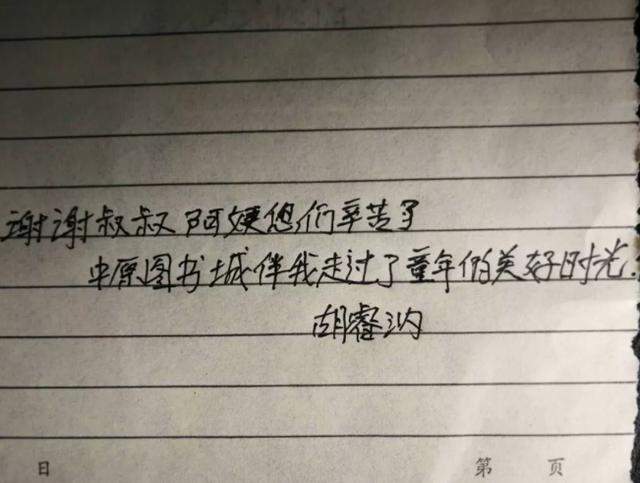 谢谢叔叔阿姨您们辛苦了
中原图书城伴我走过了童年的美好时光.
胡睿汭
日 第 页